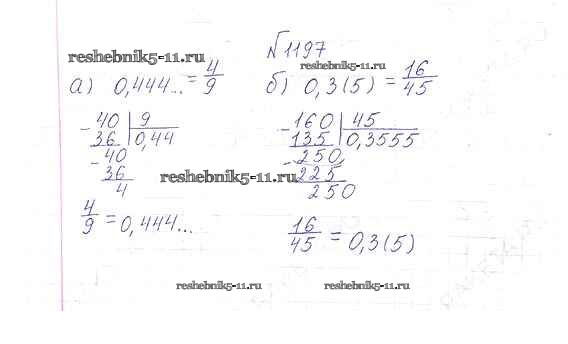 №1197
reshebnik5-11.ru
reshebnik5-11.ru
а) 0,444... = 4/9
б) 0,3(5) = 16/45
- 40 | 9
36 | 0,44
- 40
36
4
4/9 = 0,444...
- 160 | 45
135 | 0,3555
- 250
225
250
16/45 = 0,3(5)
reshebnik5-11.ru
reshebnik5-11.ru
reshebnik5-11.ru